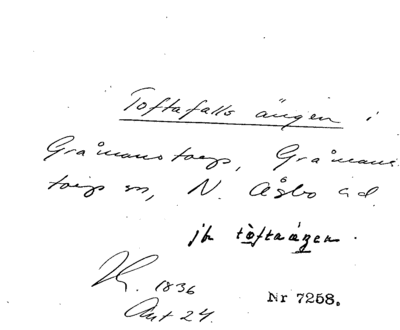 Toftafalls ängen i
Gråmanstorps, Gråmans-
torps sn, N. Åsbo hd.
jfr toftaägen.
1836
Akt 24.
Nr 7258.